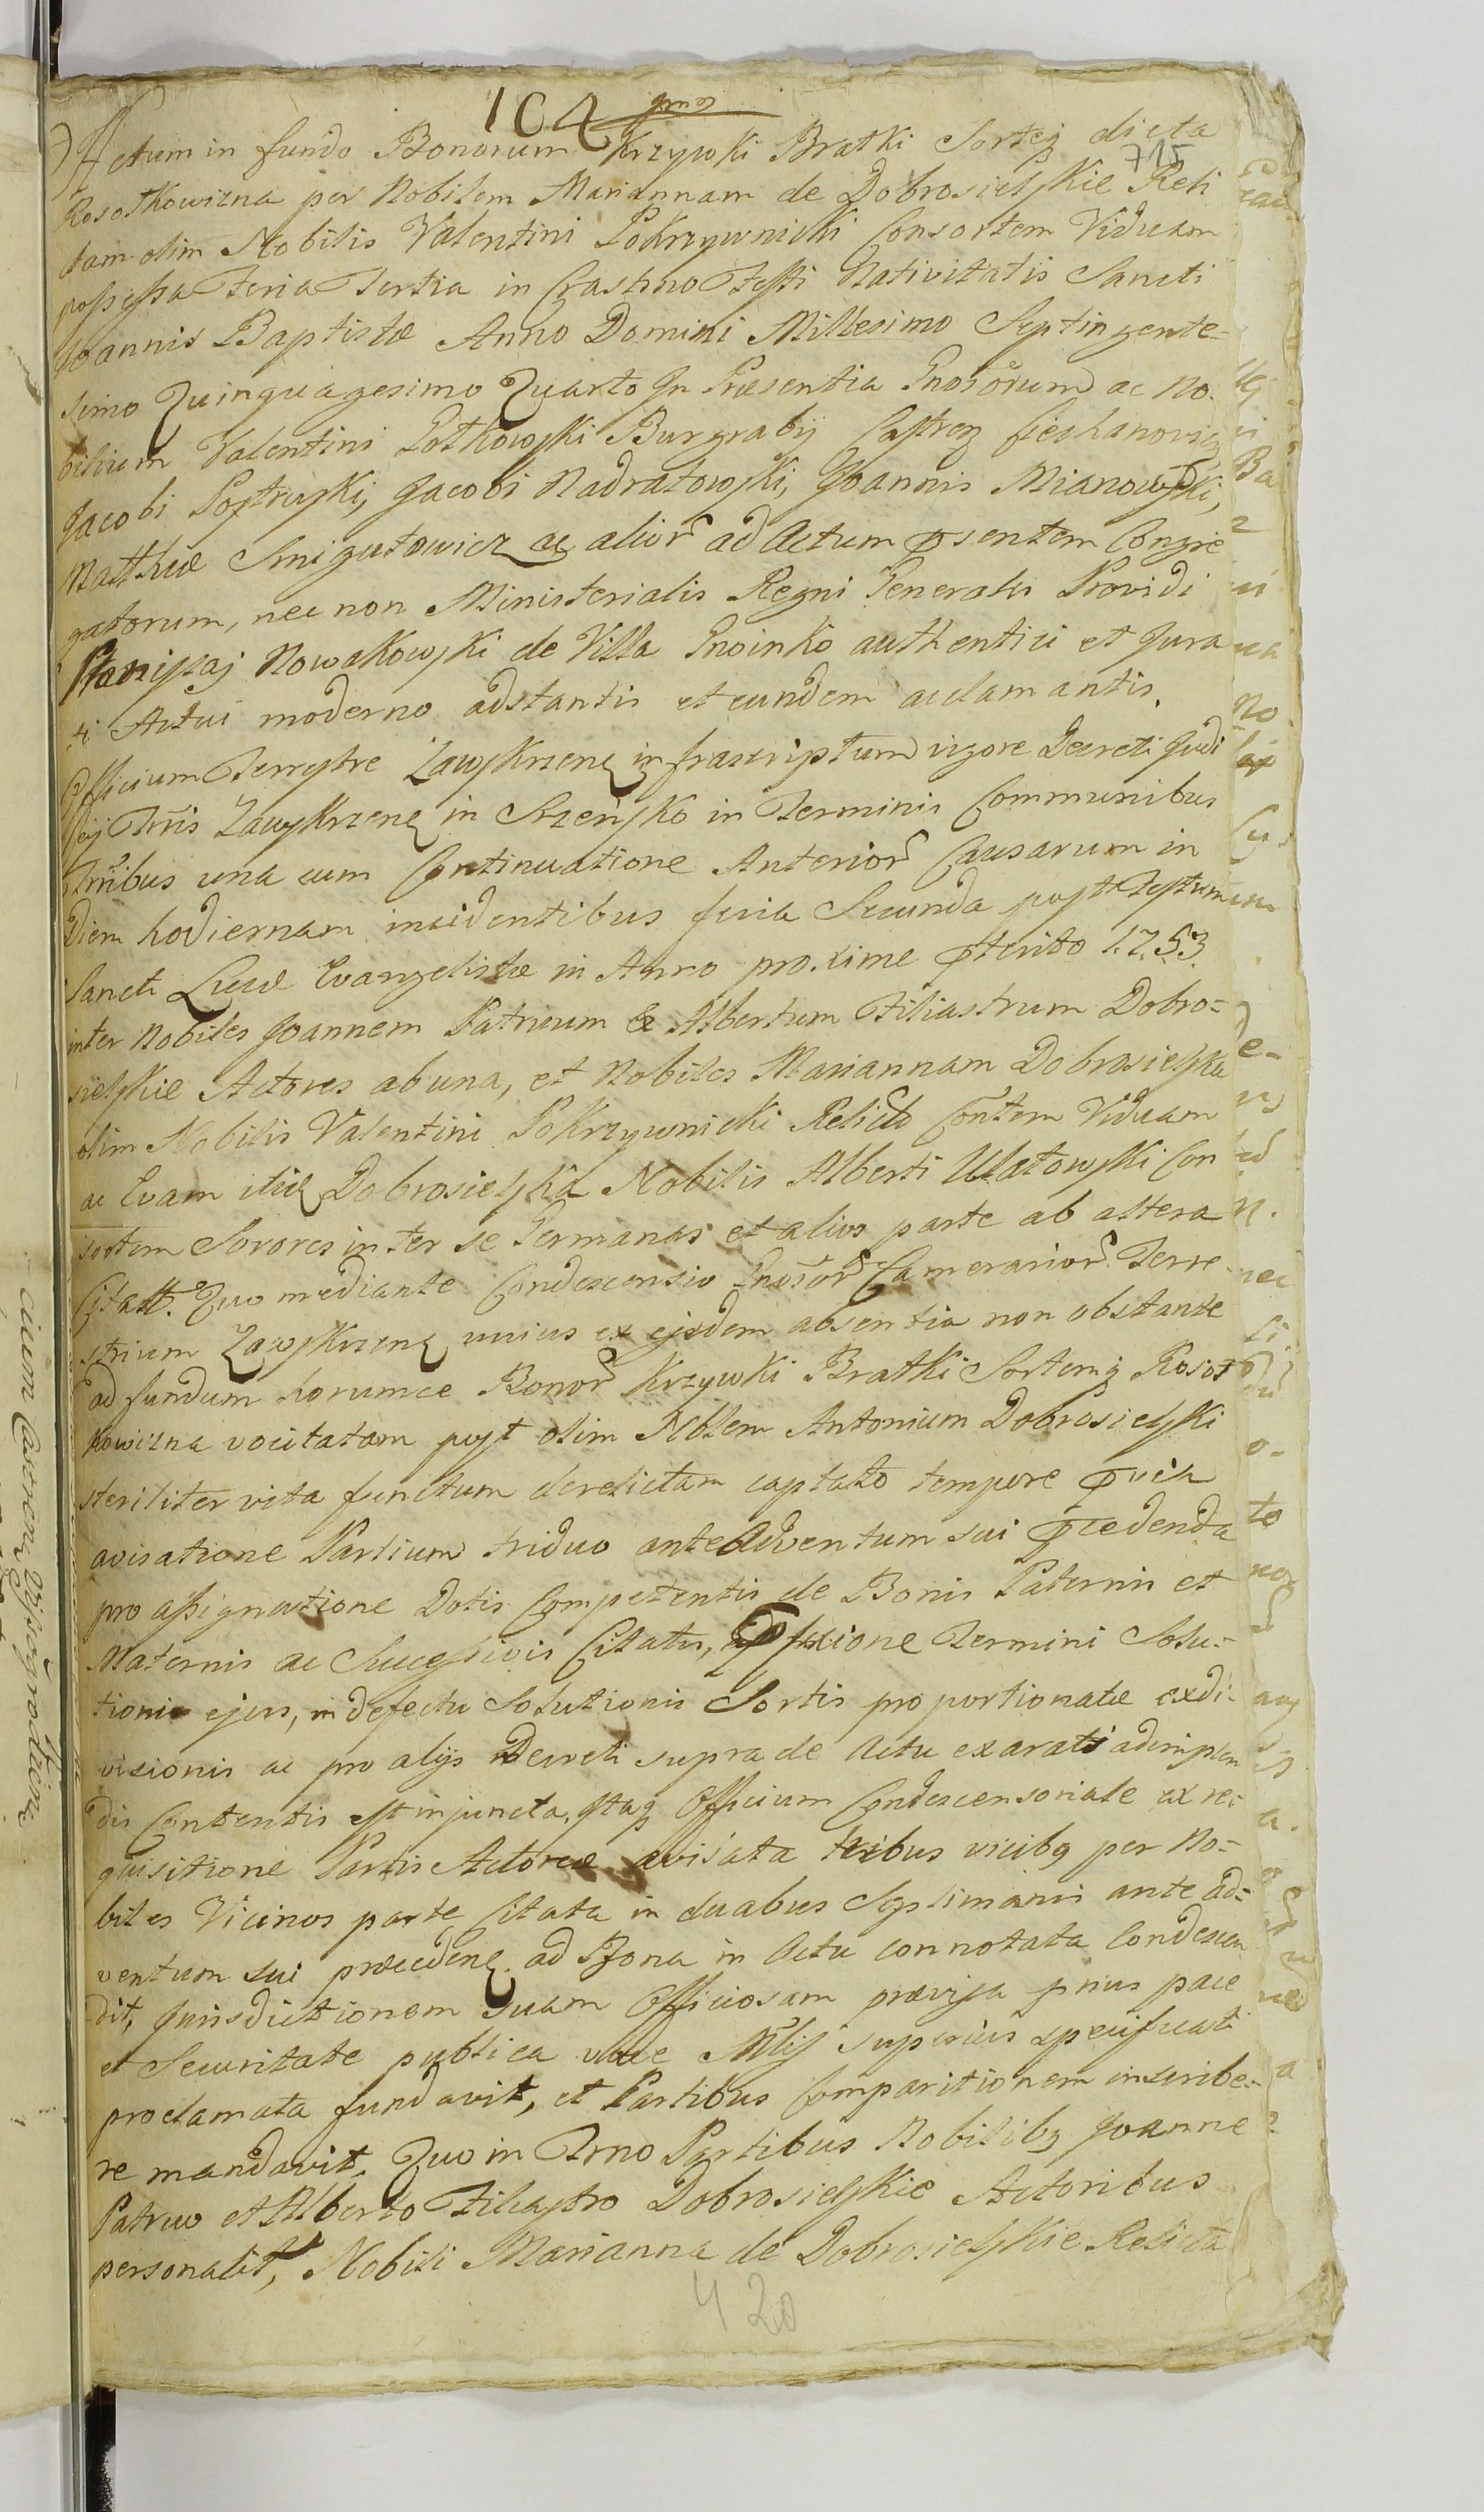 104
715
Actum in fundo Bonorum Krzywki Bratki Sorteq dicta
Rosotkowizna per Nobilem Mariannam de Dobrosielskie Reli
ctam olim Nobilis Valentini Pokrzywnicki Consortem Viduam
possessa Feria Tertia in Crastino Festi Nativitatis Sancti
Joannis Baptistæ Anno Domini Millesimo Septingente-
simo Quinquagesimo Quarto In Præsentia Gnosorum ac No-
bilium Valentini Rotkowski Burgrabij Castreq Ciechanovieq
Jacobi Postruski, Jacobi Nadratowski, Joannis Mianowski,
Matthiæ Smigutowicz ac alior ad Actum psentem Congre
gatorum, nec non Ministerialis Regni Generalis Providi
Stanislaj Nowakowski de Villa Gnoinko authentici et Jura
ti Actui moderno adstantis et eundem aclamantis.
Officium Terrestre Zawskrzene infrascriptum vigore Decreti Judi
cij Tris Zawskrzene in Szrensko in Terminis Communibus
Trribus una cum Continuatione Anterior Causarum in
Diem hodiernam incidentibus feria Secunda post Festum
Sancti Lucæ Evangelistæ in Anno proxime pterito 1753
inter Nobiles Joannem Patruum & Albertum Filiastrum Dobro-
sielskie Actores ab una, et Nobiles Mariannam Dobrosielska
olim Nobilis Valentini Pokrzywnicki Relicta Contem Viduam
ac Evam itid Dobrosielska Nobilis Alberti Ulatowski Con
sortem Sorores inter se Germanas et alios parte ab altera
Citatt. Quo mediante Condescensio Gnosor Camerarior Terre
strium Zawskrzene unius ex ejsdem absentia non obstante
ad fundum horumce Bonor Krzywki Bratki Sortemq Rosot
kowizna vocitatam post olim Nblem Antonium Dobrosielski
steriliter vita functum derelictam captato tempore pvia
avisatione Partium triduo ante Adventum sui pcedenda
pro assignatione Dotis Competentis de Bonis Paternis et
Maternis ac Successivis Citatis, pfixione Termini Solu-
tionis ejus, in defectu Solutionis Sortis proportionatæ exdi-
visionis ac pro alijs Decreti supra de Actu exarati adimplen
dis Contentis est injuncta. Itaq Officium Condescensoriale ex re-
quisitione Partis Actoreæ avisata tribus vicibq per No-
biles Vicinos parte Citata in duabus Septimanis ante ad-
ventum sui præcedene. ad Bona in Actu connotata Condescen
dit, Jurisdictionem suam Officiosam prævisa prius pace
et Securitate publica voce Mlis superius specificati
proclamata fundavit, et Partibus Comparitionem inscribe-
re mandavit. Quo in Trno Partibus Nobilibq Joanne
Patruo et Alberto Filiastro Dobrosielskie Actoribus
personalit, Nobili Marianna de Dobrosielskie Relicta
420